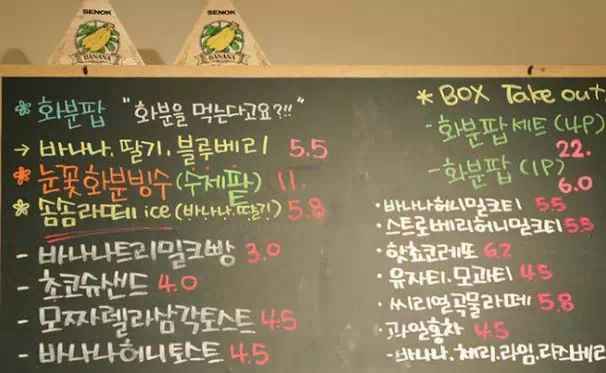 SENOK
BANANA
SENOK
BANANA
* 화분팝 "화분을 먹는다고요?!!"
→ 바나나. 딸기. 블루베리 5.5
* 눈꽃화분빙수 (수제팥) 11.
* 솜솜라떼 ice (바나나.딸기) 5.8
- 바나나트리밀크빵 3.0
- 초코슈샌드 4.0
- 모짜렐라삼각토스트 4.5
- 바나나허니토스트 4.5
* BOX Take out
- 화분팝세트 (4P)
22.
- 화분팝 (1P)
6.0
· 바나나허니밀크티 5.5
· 스트로베리허니밀크티 5.5
· 핫쵸코레또 6.2
· 유자티. 모과티 4.5
· 씨리얼곡물라떼 5.8
· 과일홍차 4.5
- 바나나. 체리. 라임. 라즈베리